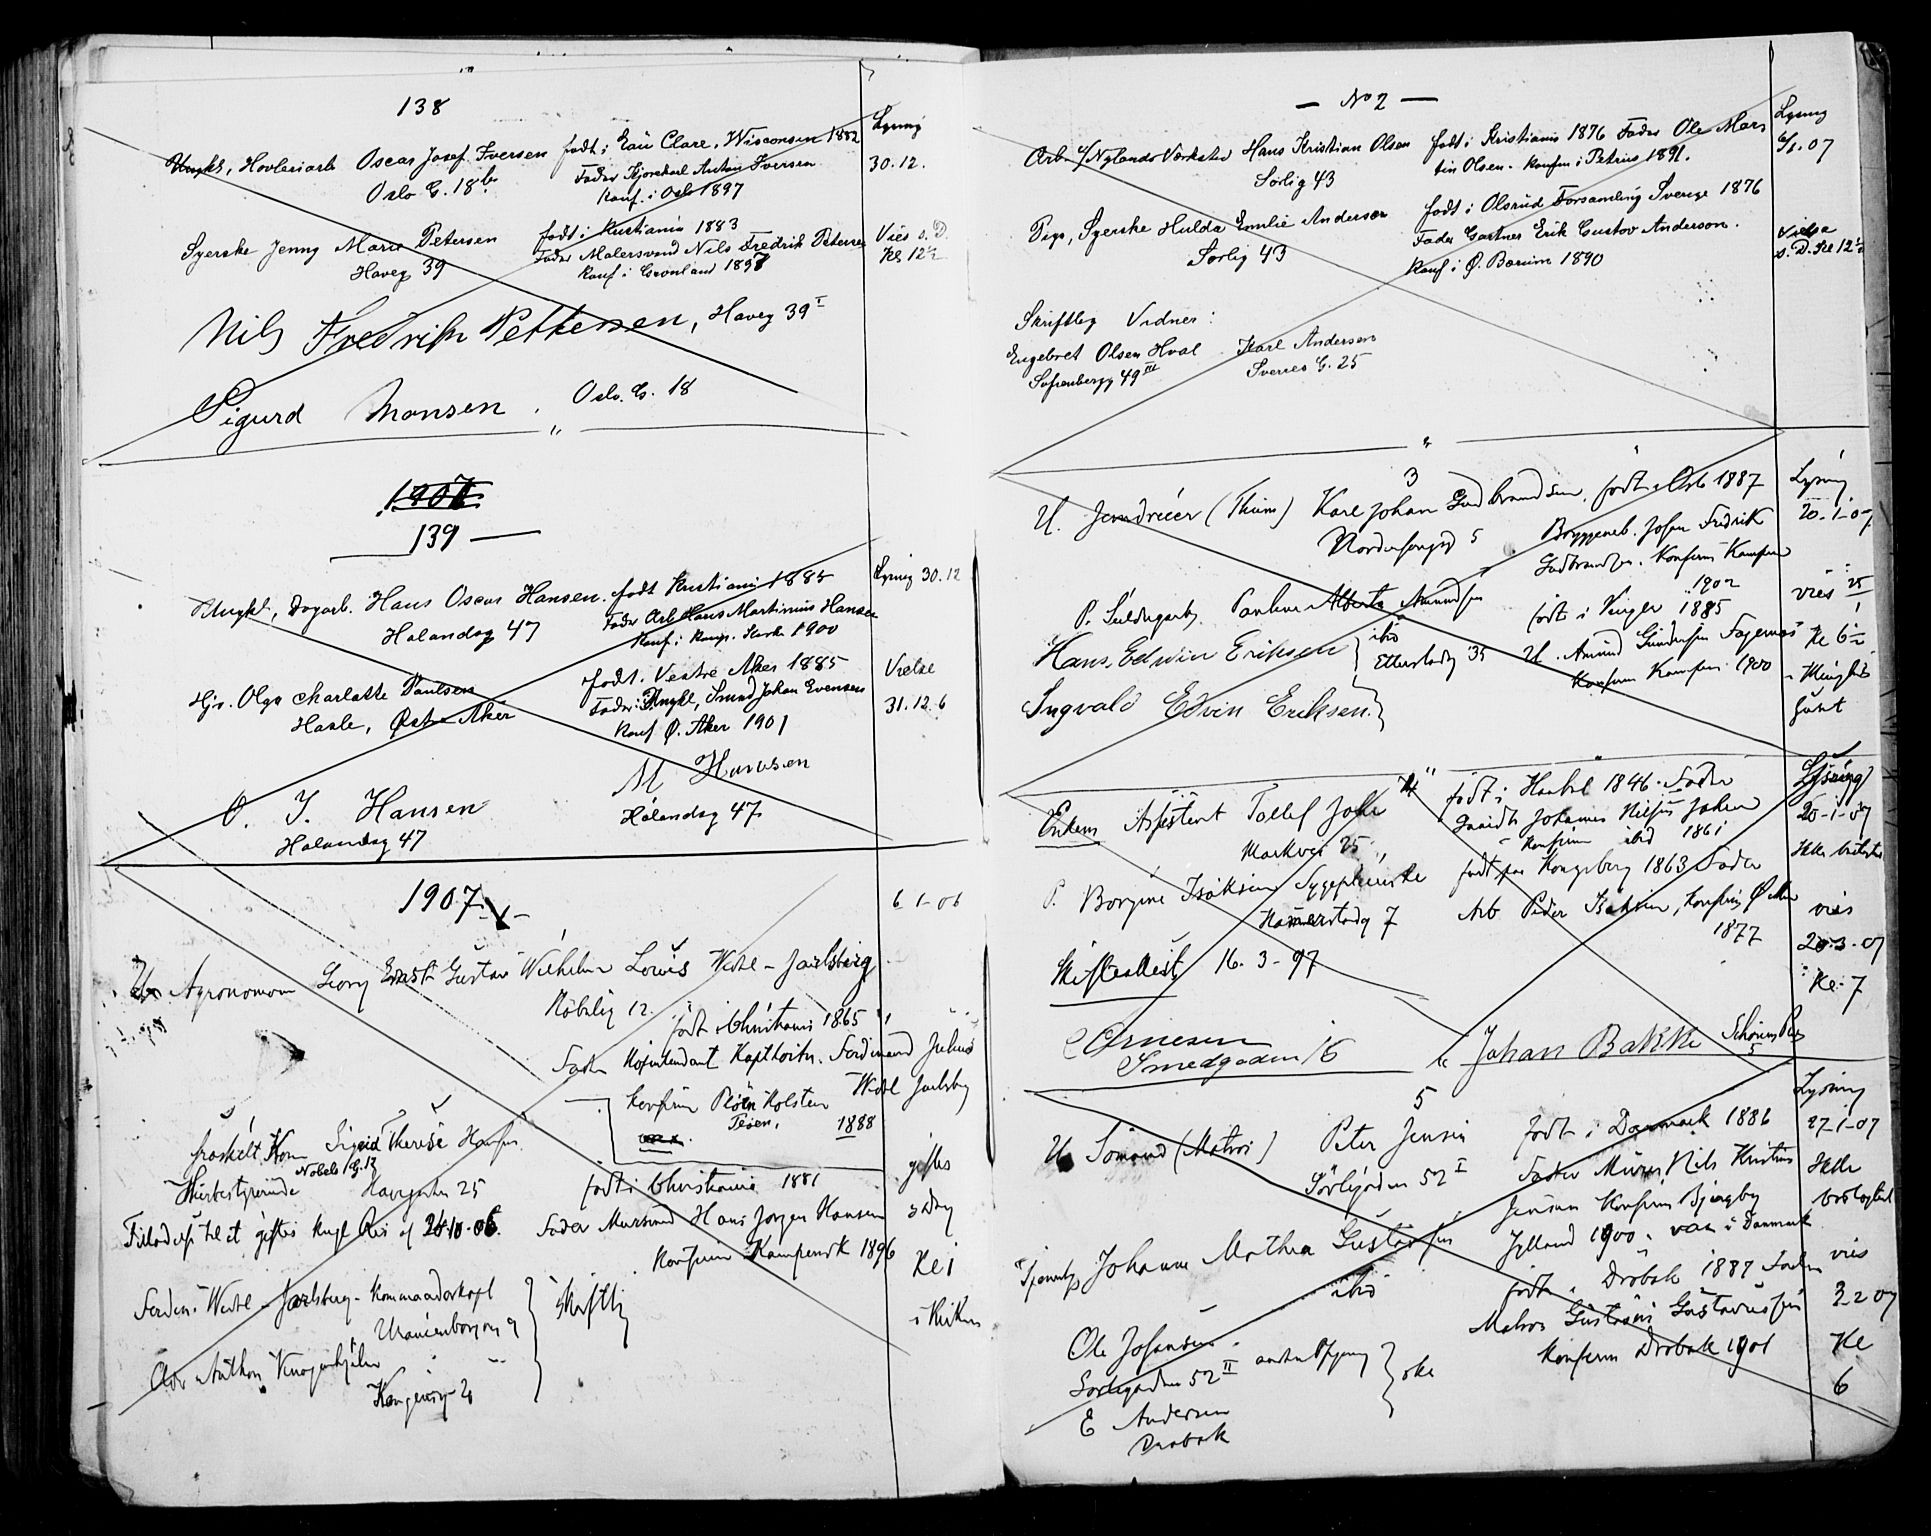 138
Ungkl, Hovleriarb Oscar Josef Iversen født i Eau Clare, Wisconsin 1882 Lysning
Oslo G. 18b Fader Kjørekarl Anton Iversen 30.12.
Konf. i Oslo 1897
Syerske Jenny Marie Petersen født i Kristiania 1883 Vies s. D.
Haveg 39 Fader Malersvend Nils Fredrik Petersen Kl 12½
Konf i Grønland 1897
Nils Fredrik Pettersen, Haveg 39 I
Sigurd Monsen. Oslo. G. 18
1907
139
Ungkl, Dagarb. Hans Oscar Hansen. født Kristiania 1885 Lysning 30.12
Halandsg 47 Fader Arb Hans Martinius Hansen
Konf. i Kamp. Kirke 1900
Hjv. Olga Charlotte Paulsen født. Vestre Aker 1885 Vielse
Hasle, Østre Aker Fader: Ungkl, Smed Johan Evensen 31.12.6
Konf Ø. Aker 1901
O. J. Hansen M Hansen
Halandsg 47 Hølandsg 47
1907 6-1-06
Agronom Georg Ernst Gustav Wilhelm Louis Wedel-Jarlsberg
Nobelsg 12. født i Christiania 1865
Fader Hofintendant Kapt Ferdinand Julius
Wedel Jarlsberg
Konfirm Pløen Holsten
1888
fraskilt Kone Sigrid Therese Hansen giftes
Nobels G. 12
Husbestyrerinde Havegaden 25 født i Christiania 1881
Tilladelse til at giftes Kngl Res af 26-10-06. Fader Mursvend Hans Jørgen Hansen s Dag
Konfirm Kampensk 1896 Kl 1
Ferdin. Wedel-Jarlsberg - Kommandørkapt Skriftlig i Kirken
Uranienborgvn 9
Adv Anthon
Kongensg 20
— No 2 —
Arb. v/ Nylands Værksted Hans Kristian Olsen født i Kristiania 1876 Fader Ole Mar- Lysning
Sørlig 43 tin Olsen. Konfm i Petrus 1891. 6/1.07
Pige, Syerske Hulda Emilie Anderson født i Olsrud Forsamling Sverige 1876
Sørlig 43 Fader Gartner Erik Gustav Anderson. Vielse
Konf i Ø. Bærum 1890 s. D. Kl 12½
Skriftlig Vidner:
Engebret Olsen Hval Karl Andersen
Sofienbergg 49 III Sverres G. 25
3
U. Jerndreier (Thune) Karl Johan Gudbrandsen, født i Oslo 1887 Lysning
5 Bryggeneb. Johan Fredrik 20-1-07
Gudbrandsen. Konfirm Kampen
1902
P. Alberta Amundsen født i Vinger 1885 vies 25/1
Hans Edwin Eriksen ibid U. Amund Gundersen Kl 6½
Etterstadg 35 Konfirm Kampen 1900 i Menigheds
Ingvald Edvin Eriksen huset
4
Enkem Assistent Tollef Johs født i Hurdal 1846. Fader Lysning
Gaardb Johannes Nilsen 20-1-07
Markvei 25 Konfirm ibid 1861
P. Borgine Isaksen Sygepleierske født paa Kongsberg 1863 Fader
Hammerstadg 7 Arb Peder Isaksen, Konfirm Ø Aker vies
1877 20-3-07
Skifteattest 16.3-97 Kl. 7
Arnesen
Smedgaden 16 Johan Bakke 5
5
U Sømand (Matros) Peter Jensen født i Danmark 1886 Lysning
Sørligaden 52 I Fader Murer Nils Kristian 27-1-07
Jensen Konfirm Bjergby
Jylland 1900. var i Danmark
Johanne Mathea Gustavsen født i Drøbak 1887 Fader vies
ibid Matros Gustavsen 3-2 07
Ole Johansen Konfirm Drøbak 1901 Kl
Sørligaden 52 II anden Opgang ske 6
E Andersen
Drøbak